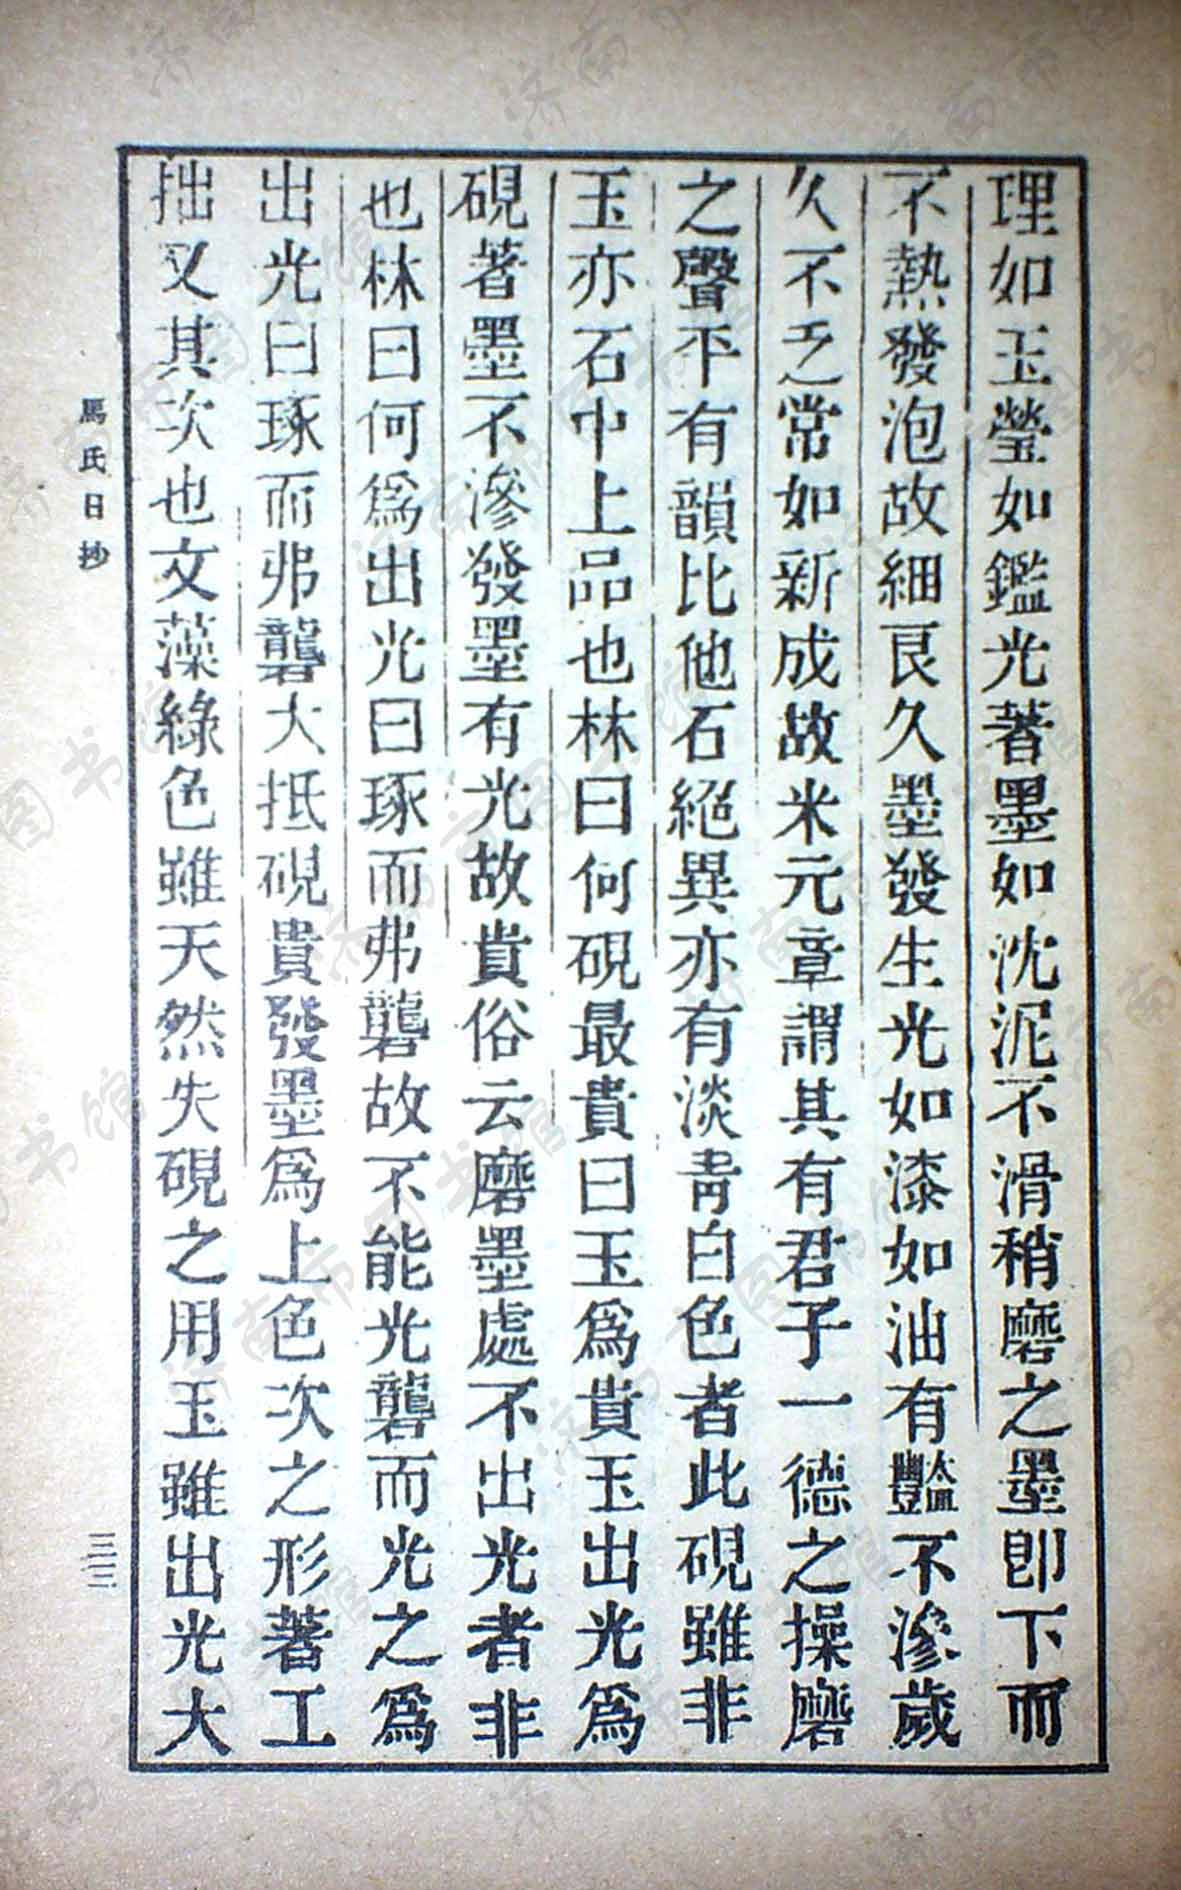 理如玉瑩如鑑光著墨如沈泥不滑稍磨之墨卽下而
不熱發泡故細良久墨發生光如漆如油有豔不滲歲
久不乏常如新成故米元章謂其有君子一德之操磨
之聲平有韻比他石絕異亦有淡靑白色者此硯雖非
玉亦石中上品也林曰何硯最貴曰玉爲貴玉出光爲
硯著墨不滲發墨有光故貴俗云磨墨處不出光者非
也林曰何爲出光曰琢而弗礱故不能光礱而光之爲
出光曰琢而弗礱大抵硯貴發墨爲上色次之形著工
拙又其次也文藻綠色雖天然失硯之用玉雖出光大
馬氏日抄
三三
济南市图书馆